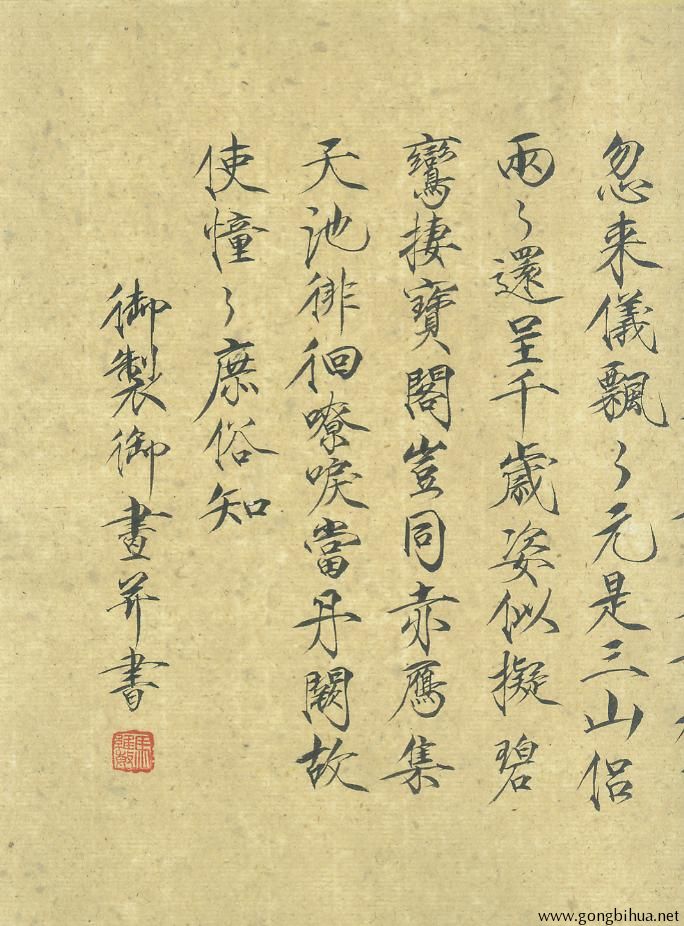 忽来儀飄〻元是三山侣
兩〻還呈千歲姿似擬碧
鸞捿寶閣豈同赤鴈集
天池徘徊嘹唳當丹闕故
使憧〻庶俗知
御製御畫并書
www.gongbihua.net